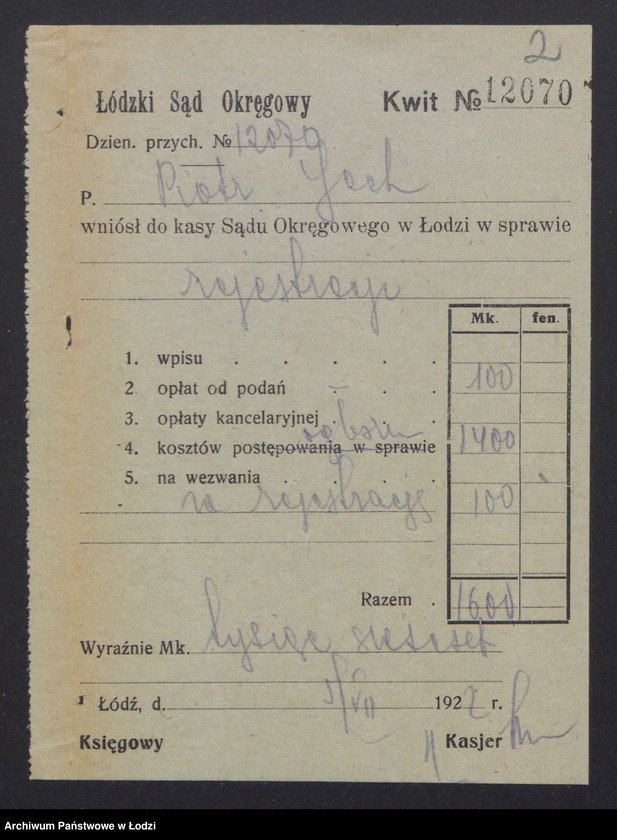 2
Łódzki Sąd Okręgowy Kwit № 12070
Dzien. przych. № 12070
P. Piotr Gech
wniósł do kasy Sądu Okręgowego w Łodzi w sprawie
rejestracji
Mk. fen.
1. wpisu . . . . .
2. opłat od podań – . . 100
3. opłaty kancelaryjnej . . .
4. kosztów postępowania w sprawie 1400
5. na wezwania . . . . .
za rejestrację 100
Razem . 1600
Wyraźnie Mk. tysiąc sześćset
Łódź, d. 5/VII 1922 r.
Księgowy Kasjer
Archiwum Państwowe w Łodzi